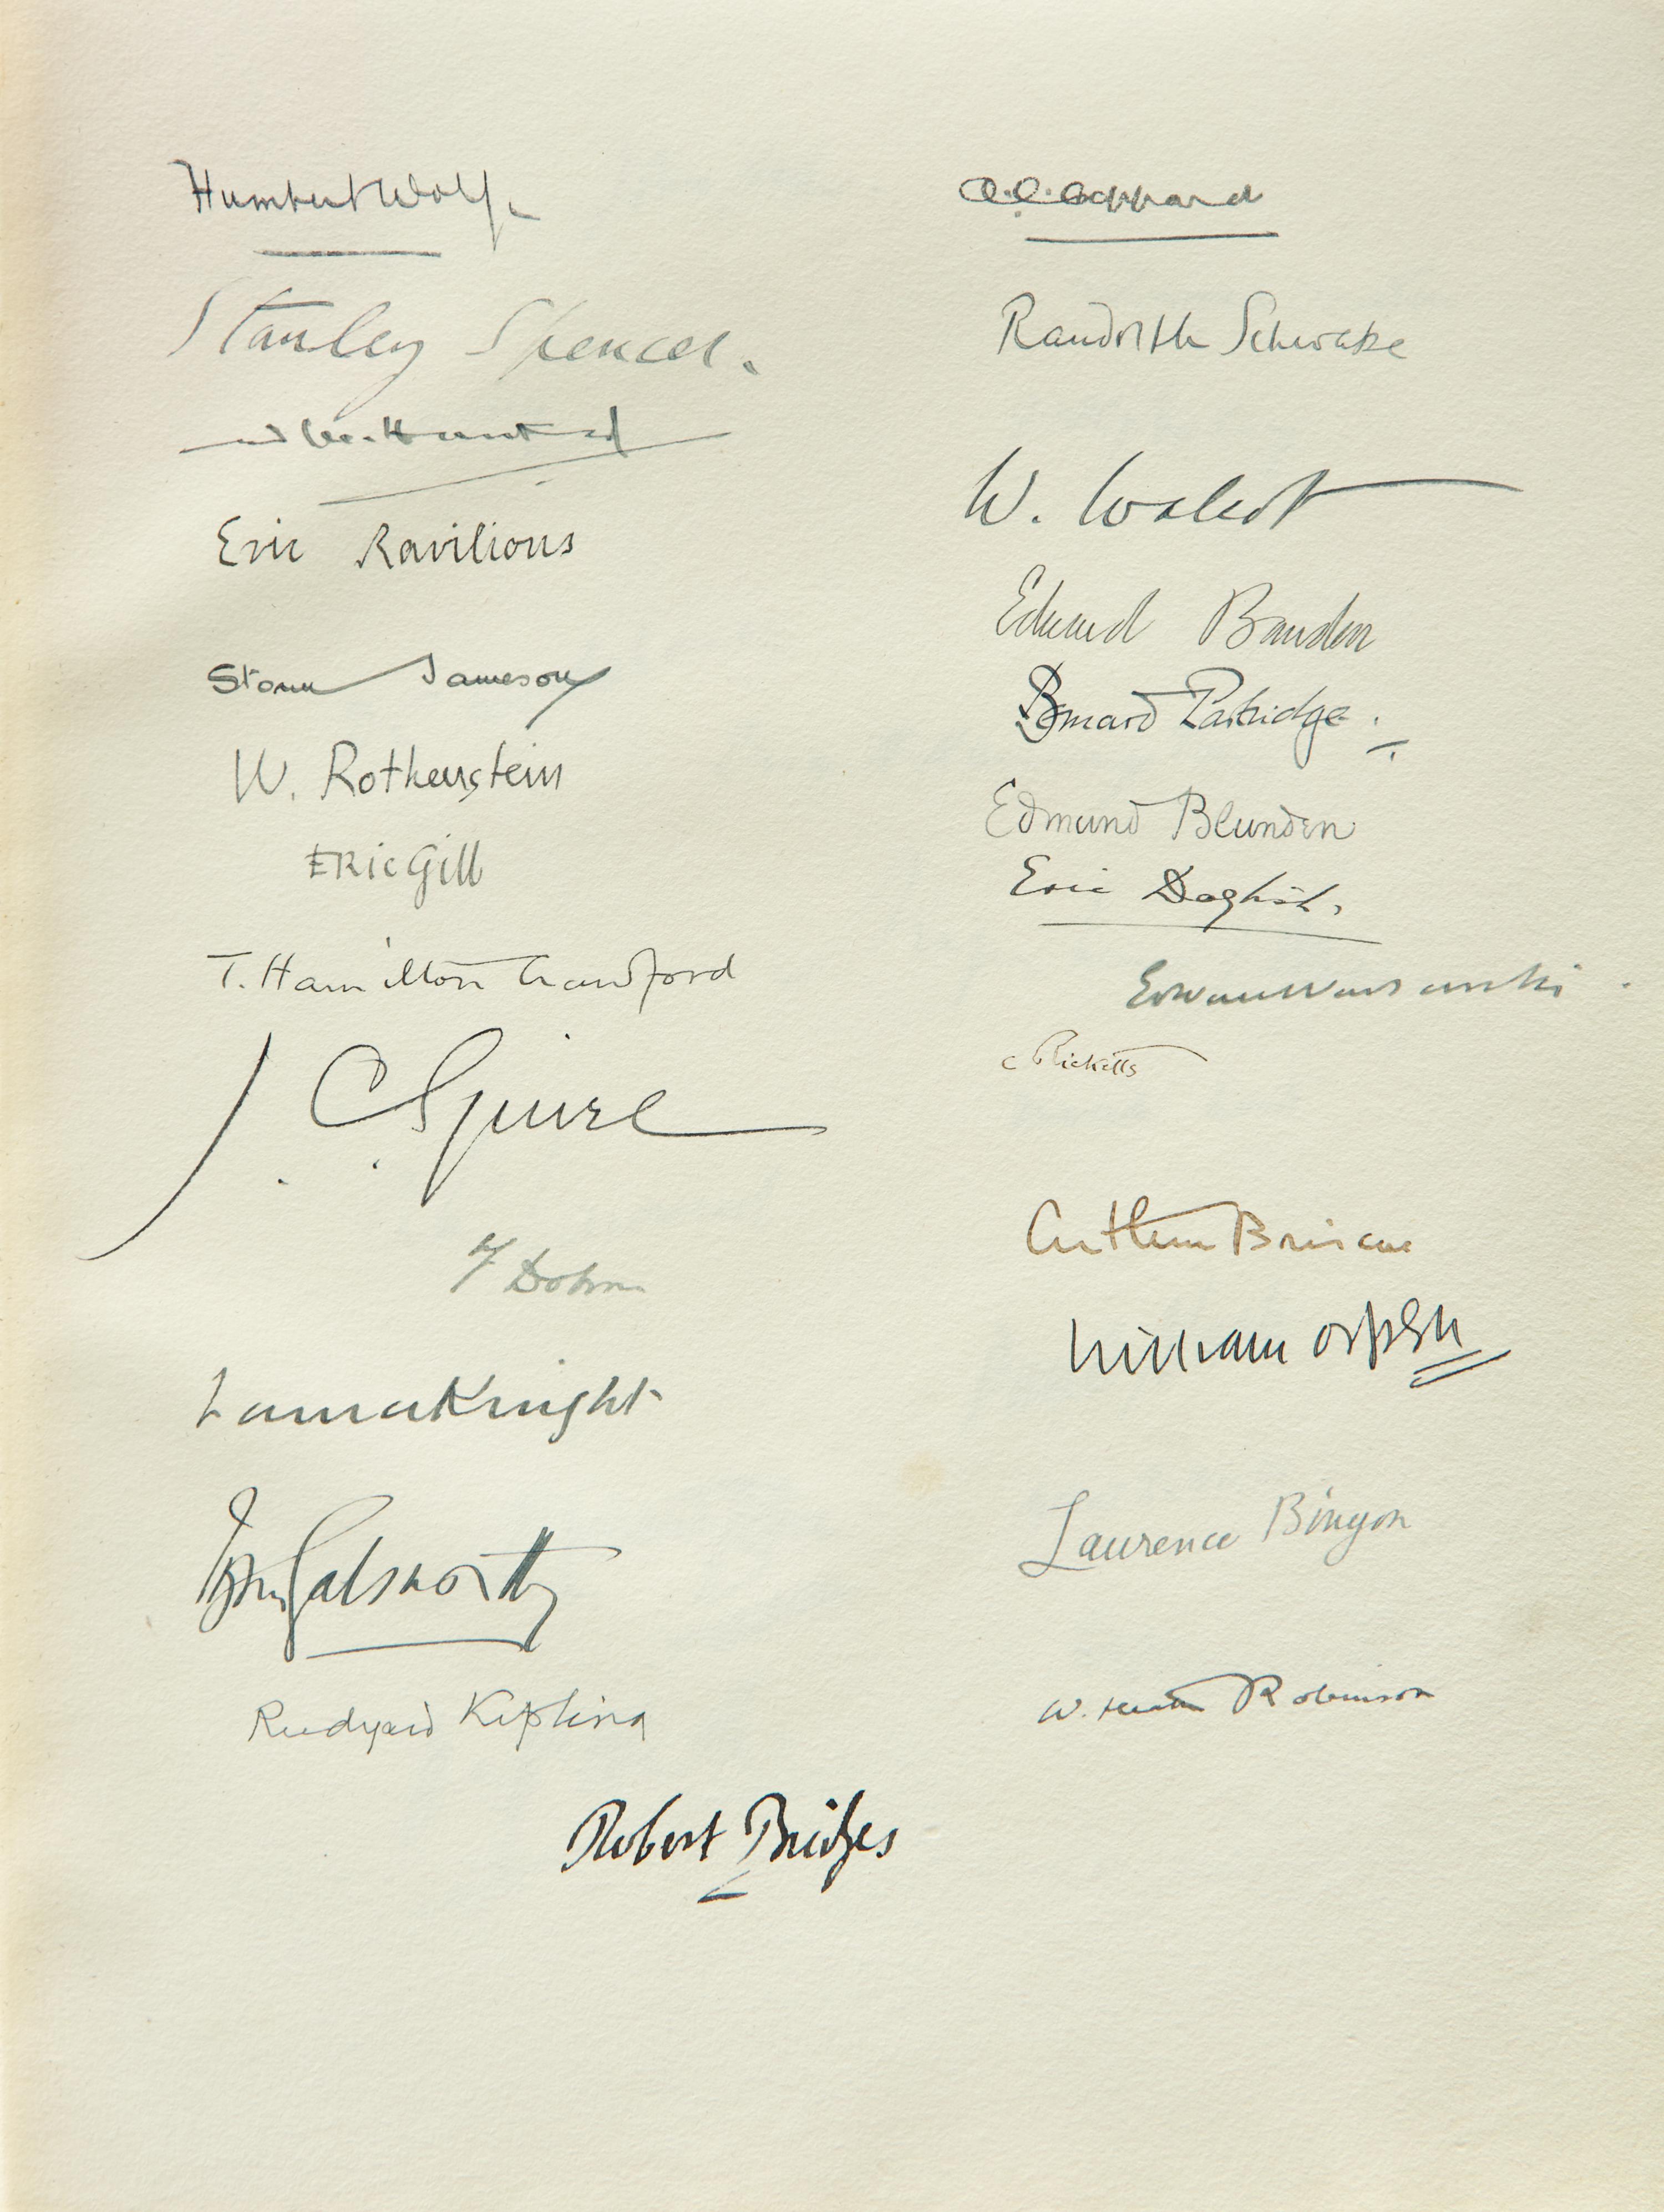 Humbert Wolfe
Stanley Spencer.
Eric Ravilious
Storm Jameson
W. Rothenstein
ERic Gill
T. Hamilton Crawford
J. C. Squire
Dohm
Laura Knight
John Galsworthy
Rudyard Kipling
A.E. Coppard
Randolph Schwabe
W. Walcot
Edward Bawden
Bernard Partridge.
Edmund Blunden
Eric Daglish.
C Ricketts
Arthur Briscoe
William Orpen
Laurence Binyon
W. Heath Robinson
Robert Bridges